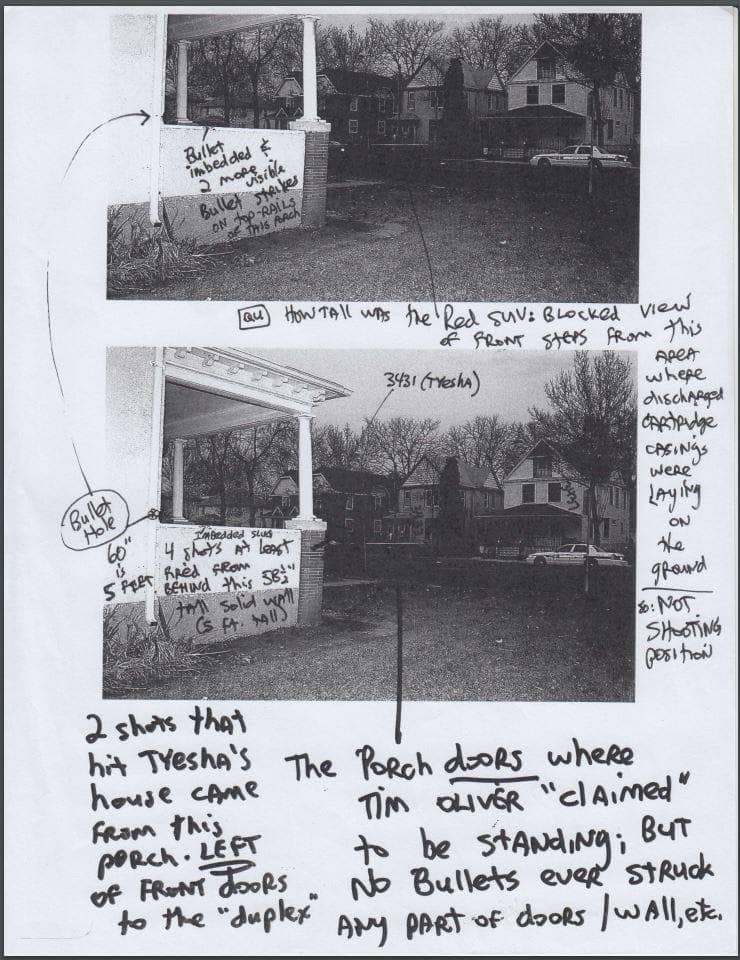 Bullet
imbedded &
2 more visible
Bullet strikes
on top-rails
of this porch
Q4 How tall was the Red SUV: Blocked view
of front steps from this
area
where
discharged
cartridge
casings
were
laying
on
the
ground
&: Not
shooting
position
3431 (Tyesha)
Bullet
Hole
60"
is
5 feet
Imbedded slug
4 shots at least
fired from
behind this 58½"
tall solid wall
(5 ft. tall)
2 shots that
hit Tyesha's
house came
from this
porch. LEFT
of front doors
to the "duplex"
The Porch doors where
Tim Oliver "claimed"
to be standing; But
No Bullets ever struck
any part of doors / wall, etc.